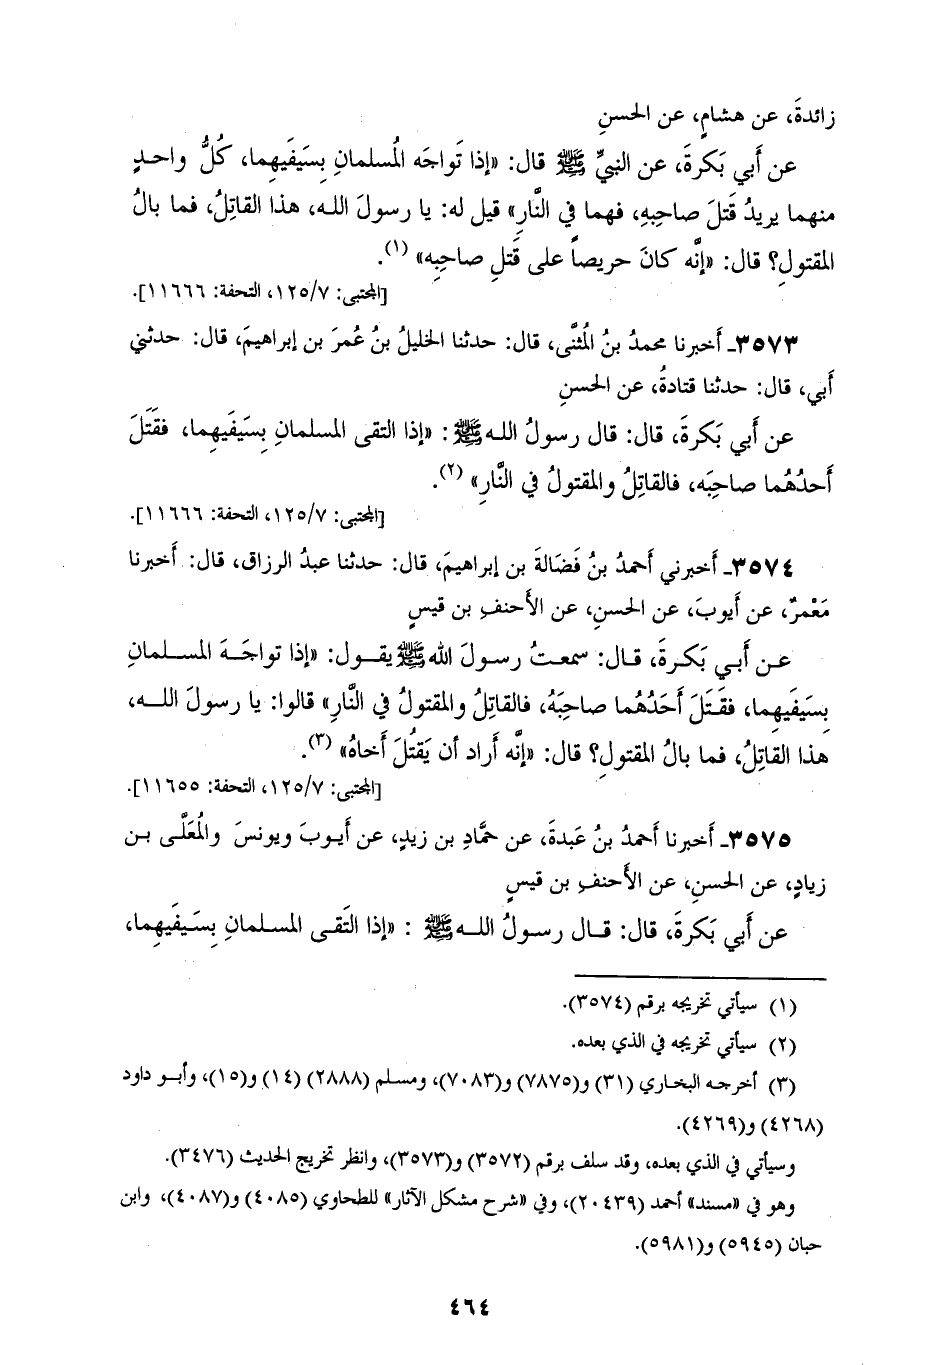 زائدةَ، عن هشامٍ، عن الحسنِ
عن أَبي بَكرةَ، عن النبيِّ ﷺ قال: «إذا تَواجَه المُسلمانِ بِسَيفَيهِما، كُلُّ واحـدٍ
منهما يريدُ قَتلَ صاحِبِهِ، فهما في النَّارِ» قيل له: يا رسولَ اللـه، هذا القاتِلُ، فما بالُ
المقتولِ؟ قال: «إنَّه كانَ حريصاً على قَتلِ صاحِبِه» (١).
[المجتبى: ١٢٥/٧، التحفة: ١١٦٦٦].
٣٥٧٣ـ أَخبرنا محمدُ بنُ المُثنَّى، قال: حدثنا الخليلُ بنُ عُمرَ بن إبراهيمَ، قال: حدثني
أَبي، قال: حدثنا قتادةُ، عن الحسنِ
عن أَبي بَكرةَ، قال: قال رسولُ اللـه ﷺ: «إذا التقى المسلمانِ بِسَيفَيهِما، فقَتَلَ
أَحدُهُما صاحِبَه، فالقاتِلُ والمقتولُ في النَّارِ» (٢).
[المجتبى: ١٢٥/٧، التحفة: ١١٦٦٦].
٣٥٧٤ـ أَخبرني أَحمدُ بنُ فَضَالةَ بن إبراهيمَ، قال: حدثنا عبدُ الرزاق، قال: أَخبرنا
مَعْمرٌ، عن أَيوبَ، عن الحسنِ، عن الأَحنفِ بن قيسٍ
عـن أَبـي بَكـرةَ، قـال: سمعـتُ رسـولَ الله ﷺ يقـول: «إذا تواجَـهَ المسـلمانِ
بِسَيفَيهِما، فقَتَلَ أَحَدُهُما صاحِبَهُ، فالقاتِلُ والمقتولُ في النَّارِ» قالوا: يا رسولَ اللـه،
هذا القاتِلُ، فما بالُ المقتولِ؟ قال: «إنَّه أَراد أن يَقتُلَ أَخاهُ» (٣).
[المجتبى: ١٢٥/٧، التحفة: ١١٦٥٥].
٣٥٧٥ـ أَخبرنا أَحمدُ بنُ عَبدةَ، عن حمَّادِ بن زيدٍ، عن أَيـوبَ ويونسَ والمُعَلَّـى بـن
زيادٍ، عن الحسنِ، عن الأَحنفِ بن قيسٍ
عن أَبي بَكرةَ، قال: قـال رسـولُ اللـه ﷺ : «إذا التَقـى المسـلمانِ بِسَـيفَيهِما،
(١) سيأتي تخريجه برقم (٣٥٧٤).
(٢) سيأتي تخريجه في الذي بعده.
(٣) أخرجـه البخـاري (٣١) و(٧٨٧٥) و(٧٠٨٣)، ومسـلم (٢٨٨٨) (١٤) و(١٥)، وأبـو داود
(٤٢٦٨) و(٤٢٦٩).
وسيأتي في الذي بعده، وقد سلف برقم (٣٥٧٢) و(٣٥٧٣)، وانظر تخريج الحديث (٣٤٧٦).
وهو في «مسند» أحمد (٢٠٤٣٩)، وفي «شرح مشكل الآثار» للطحاوي (٤٠٨٥) و(٤٠٨٧)، وابن
حبان (٥٩٤٥) و(٥٩٨١).
٤٦٤